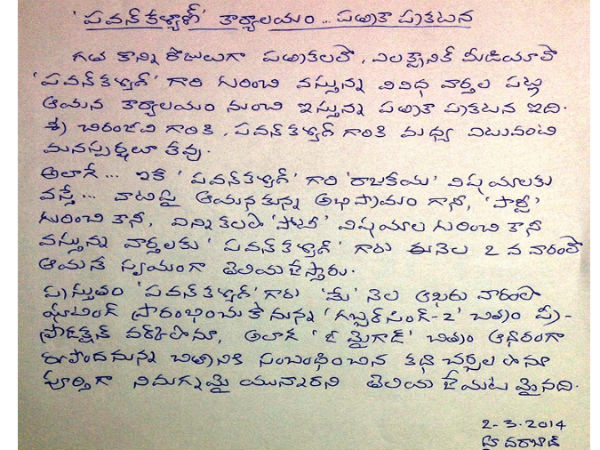 'పవన్ కళ్యాణ్' కార్యాలయం... పత్రికా ప్రకటన
గత కొన్ని రోజులుగా పత్రికలలో, ఎలక్ట్రానిక్ మీడియాలో
'పవన్ కళ్యాణ్' గారి గురించి వస్తున్న వివిధ వార్తల పట్ల
ఆయన కార్యాలయం నుంచి ఇస్తున్న పత్రికా ప్రకటన ఇది.
శ్రీ చిరంజీవి గారికి, పవన్ కళ్యాణ్ గారికి మధ్య ఎటువంటి
మనస్పర్ధలూ లేవు.
అలాగే... ఇక 'పవన్ కళ్యాణ్' గారి 'రాజకీయ' విషయాలకు
వస్తే... వాటిపై ఆయనకున్న అభిప్రాయం గానీ, 'పార్టీ'
గురించి కానీ, ఎన్నికలలో 'పోటీ' విషయాల గురించి కానీ
వస్తున్న వార్తలకు 'పవన్ కళ్యాణ్' గారు ఈనెల 2 వ వారంలో
ఆయనే స్వయంగా తెలియజేస్తారు.
ప్రస్తుతం 'పవన్ కళ్యాణ్' గారు 'మే' నెల ఆఖరు వారంలో
షూటింగ్ ప్రారంభించుకోనున్న 'గబ్బర్ సింగ్-2' చిత్రం ప్రీ-
ప్రొడక్షన్ వర్క్ లోనూ, అలాగే 'ఓ మైగాడ్' చిత్రం ఆధారంగా
రూపొందనున్న చిత్రానికి సంబంధించిన కథా చర్చల లోనూ
పూర్తిగా నిమగ్నమై యున్నారని తెలియ జేయటమైనది.
2-3-2014
హైదరాబాద్